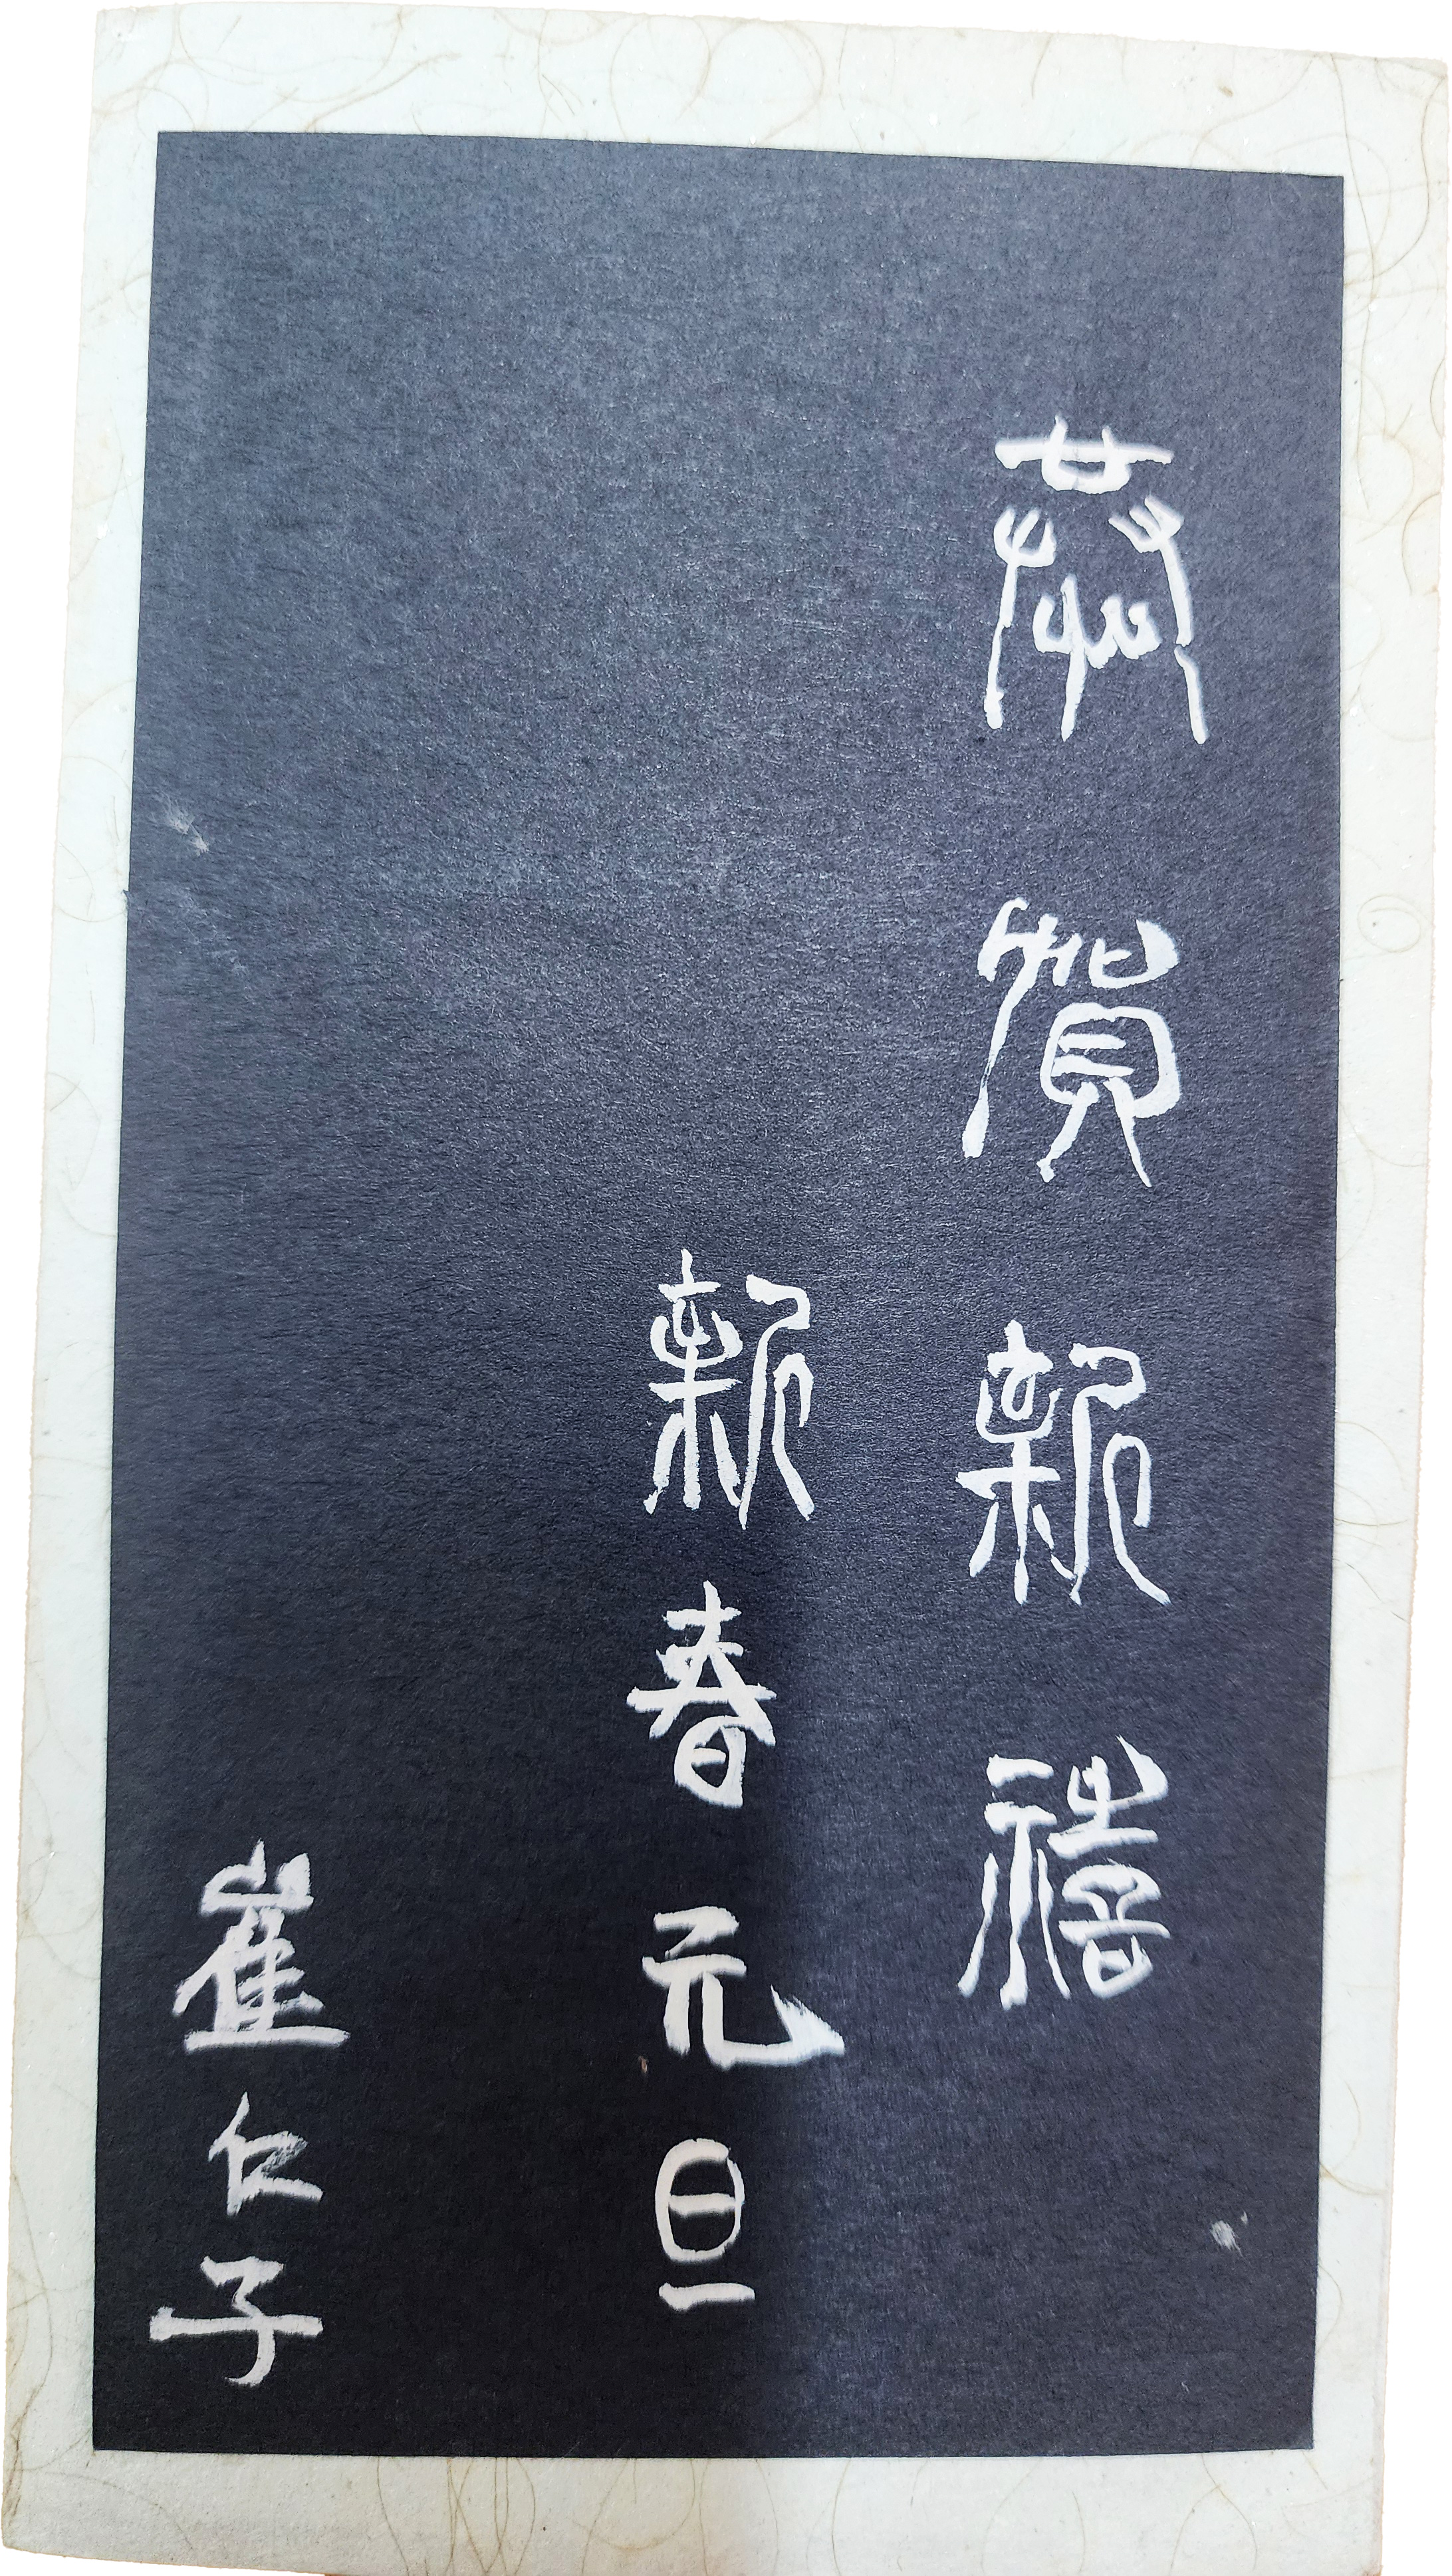 恭賀新禧
新春元旦
崔仁子